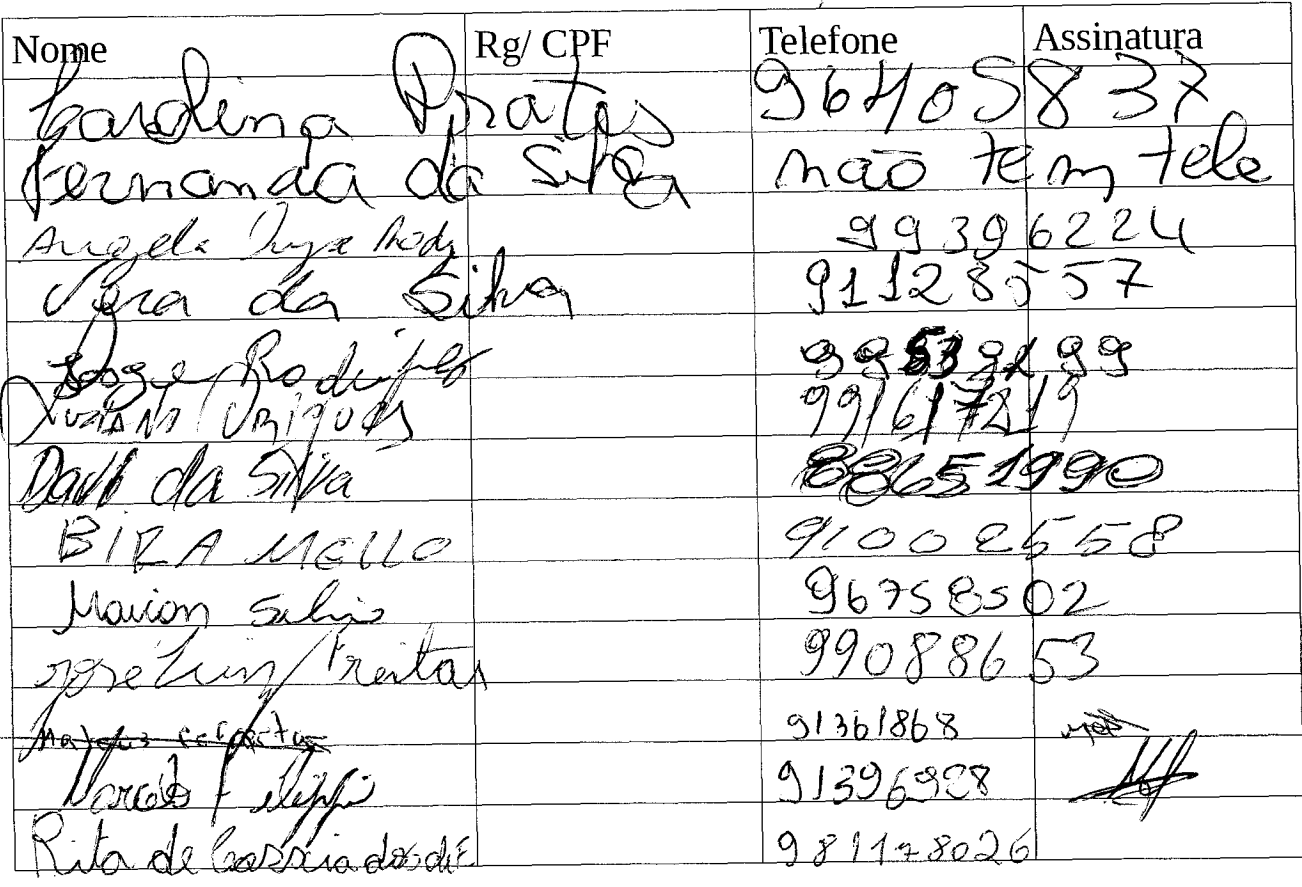 Nome Rg/ CPF Telefone Assinatura
Carolina Prates 96405837
Fernanda da Silva não tem tele
Angela 99396224
Vera da Silva 91128557
Jorge Rodrigues
991617219
da Silva 88651990
BIRA MELLO 91002558
Marion Silva 96758502
José Luiz Freitas 99088653
91361868
Marcelo Filippi 91396928
Rita de Cassia 981178026